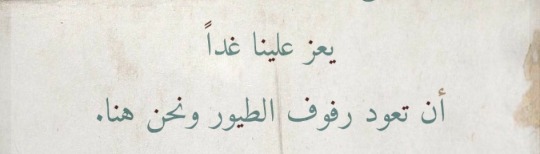 يعز علينا غداً
أن تعود رفوف الطيور ونحن هنا.